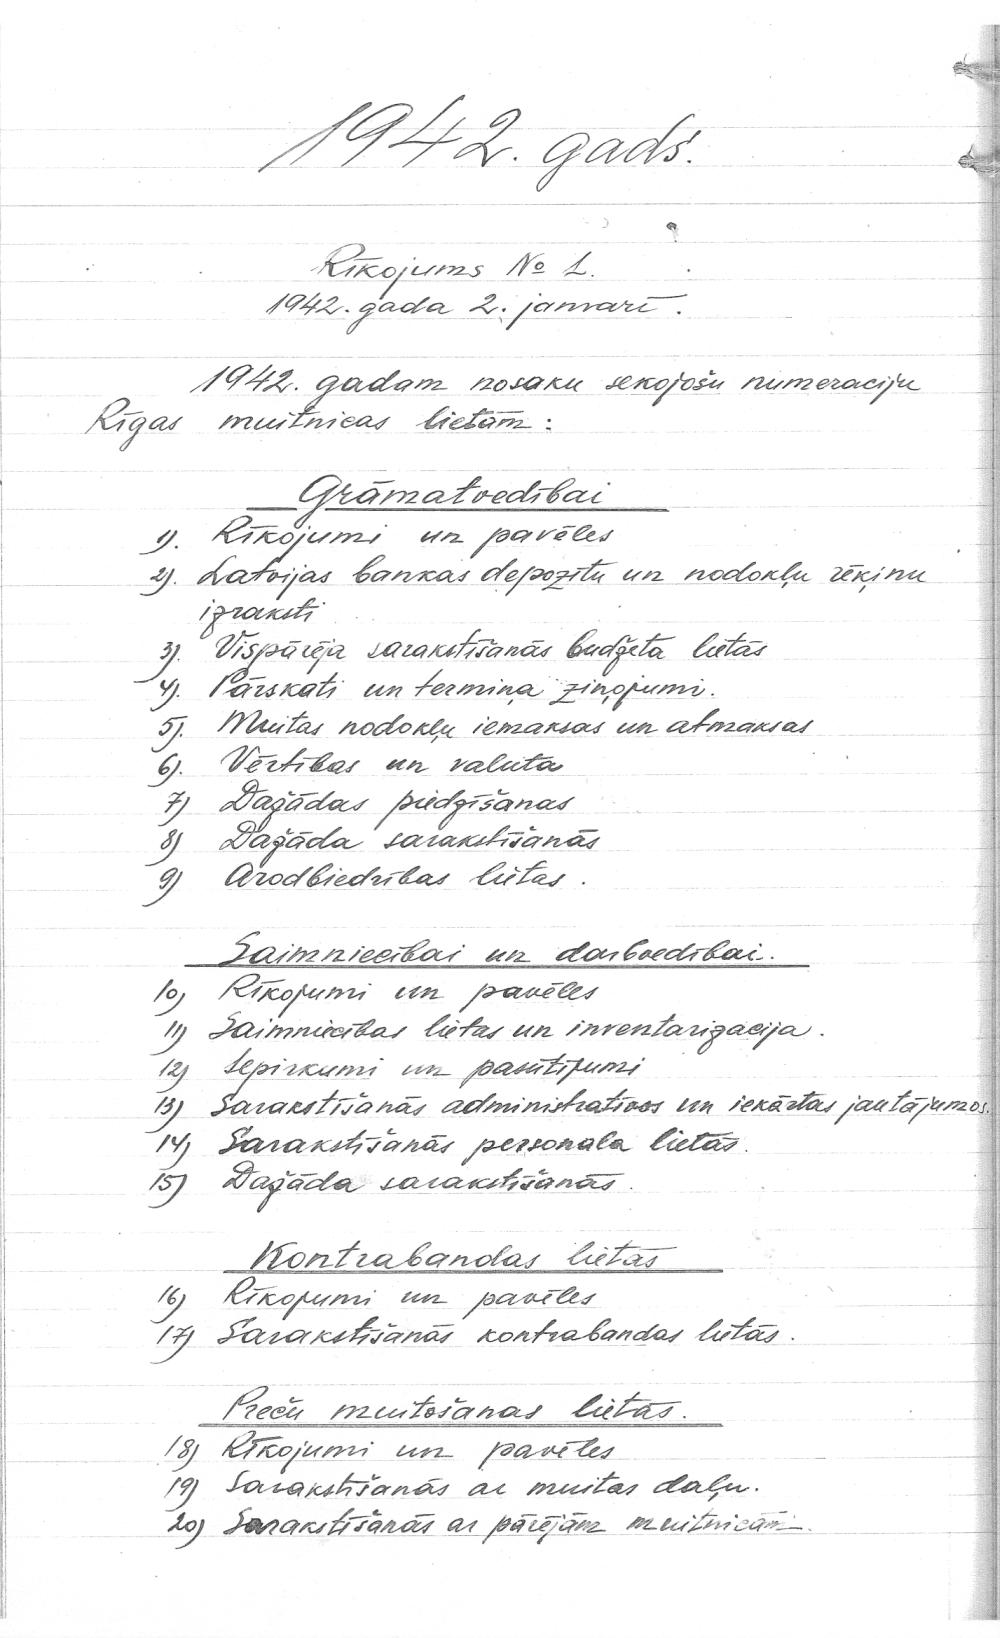 1942. gads.
Rīkojums № 1.
1942. gada 2. janvarī.
1942. gadam nosaku sekojošu numeraciju
Rīgas muitnicas lietām:
Grāmatvedībai
1). Rīkojumi un pavēles
2). Latvijas bankas depozitu un nodokļu rēķinu
izraksti
3). Vispārēja sarakstīšanās budžeta lietās
4). Pārskati un termiņa ziņojumi.
5). Muitas nodokļu iemaksas un atmaksas
6). Vērtības un valuta
7) Dažādas piedzīšanas
8) Dažāda sarakstīšanās
9) Arodbiedrības lietas.
Saimniecībai un darbvedībai.
10) Rīkojumi un pavēles
11) Saimniecības lietas un inventarizacija.
12) Iepirkumi un pasūtījumi
13) Sarakstīšanās administratīvos un iekārtas jautājumos.
14) Sarakstīšanās personala lietās.
15) Dažāda sarakstīšanās.
Kontrabandas lietās
16) Rīkojumi un pavēles
17) Sarakstīšanās kontrabandas lietās.
Preču muitošanas lietās.
18) Rīkojumi un pavēles
19) Sarakstīšanās ar muitas daļu.
20) Sarakstīšanās ar pārējām muitnicām.